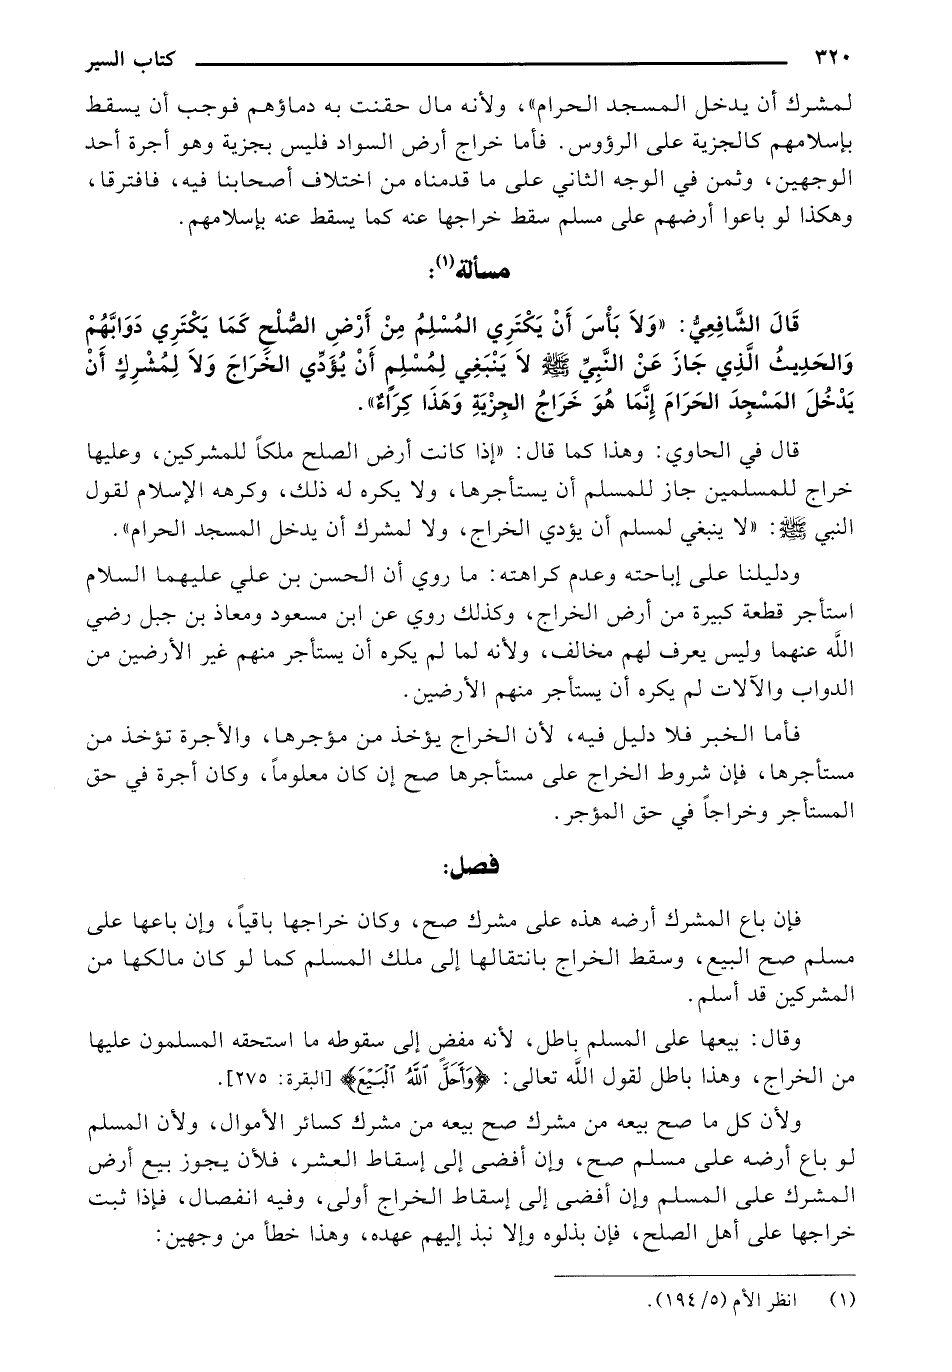 ٣٢٠ كتاب السير
لمشرك أن يدخل المسجد الحرام»، ولأنه مال حقنت به دماؤهم فوجب أن يسقط
بإسلامهم كالجزية على الرؤوس. فأما خراج أرض السواد فليس بجزية وهو أجرة أحد
الوجهين، وثمن في الوجه الثاني على ما قدمناه من اختلاف أصحابنا فيه، فافترقا،
وهكذا لو باعوا أرضهم على مسلم سقط خراجها عنه كما يسقط عنه بإسلامهم.
مسألة(١):
قَالَ الشَّافِعِيُّ: «وَلاَ بَأْسَ أَنْ يَكْتَرِي المُسْلِمُ مِنْ أَرْضِ الصُّلْحِ كَمَا يَكْتَرِي دَوَابَّهُمْ
وَالحَدِيثُ الَّذِي جَازَ عَنْ النَّبِيِّ ﷺ لاَ يَنْبَغِي لِمُسْلِمٍ أَنْ يُؤَدِّي الخَرَاجَ وَلاَ لِمُشْرِكٍ أَنْ
يَدْخُلَ المَسْجِدَ الحَرَامَ إِنَّمَا هُوَ خَرَاجُ الجِزْيَةِ وَهَذَا كِرَاءٌ».
قال في الحاوي: وهذا كما قال: «إذا كانت أرض الصلح ملكاً للمشركين، وعليها
خراج للمسلمين جاز للمسلم أن يستأجرها، ولا يكره له ذلك، وكرهه الإسلام لقول
النبي ﷺ: «لا ينبغي لمسلم أن يؤدي الخراج، ولا لمشرك أن يدخل المسجد الحرام».
ودليلنا على إباحته وعدم كراهته: ما روي أن الحسن بن علي عليهما السلام
استأجر قطعة كبيرة من أرض الخراج، وكذلك روي عن ابن مسعود ومعاذ بن جبل رضي
الله عنهما وليس يعرف لهم مخالف، ولأنه لما لم يكره أن يستأجر منهم غير الأرضين من
الدواب والآلات لم يكره أن يستأجر منهم الأرضين.
فأما الخبر فلا دليل فيه، لأن الخراج يؤخذ من مؤجرها، والأجرة تؤخذ من
مستأجرها، فإن شروط الخراج على مستأجرها صح إن كان معلوماً، وكان أجرة في حق
المستأجر وخراجاً في حق المؤجر.
فصل:
فإن باع المشرك أرضه هذه على مشرك صح، وكان خراجها باقياً، وإن باعها على
مسلم صح البيع، وسقط الخراج بانتقالها إلى ملك المسلم كما لو كان مالكها من
المشركين قد أسلم.
وقال: بيعها على المسلم باطل، لأنه مفض إلى سقوطه ما استحقه المسلمون عليها
من الخراج، وهذا باطل لقول الله تعالى: ﴿وَأَحَلَّ ٱللَّهُ ٱلْبَيْعَ﴾ [البقرة: ٢٧٥].
ولأن كل ما صح بيعه من مشرك صح بيعه من مشرك كسائر الأموال، ولأن المسلم
لو باع أرضه على مسلم صح، وإن أفضى إلى إسقاط العشر، فلأن يجوز بيع أرض
المشرك على المسلم وإن أفضى إلى إسقاط الخراج أولى، وفيه انفصال، فإذا ثبت
خراجها على أهل الصلح، فإن بذلوه وإلا نبذ إليهم عهده، وهذا خطأ من وجهين:
(١) انظر الأم (٥/ ١٩٤).